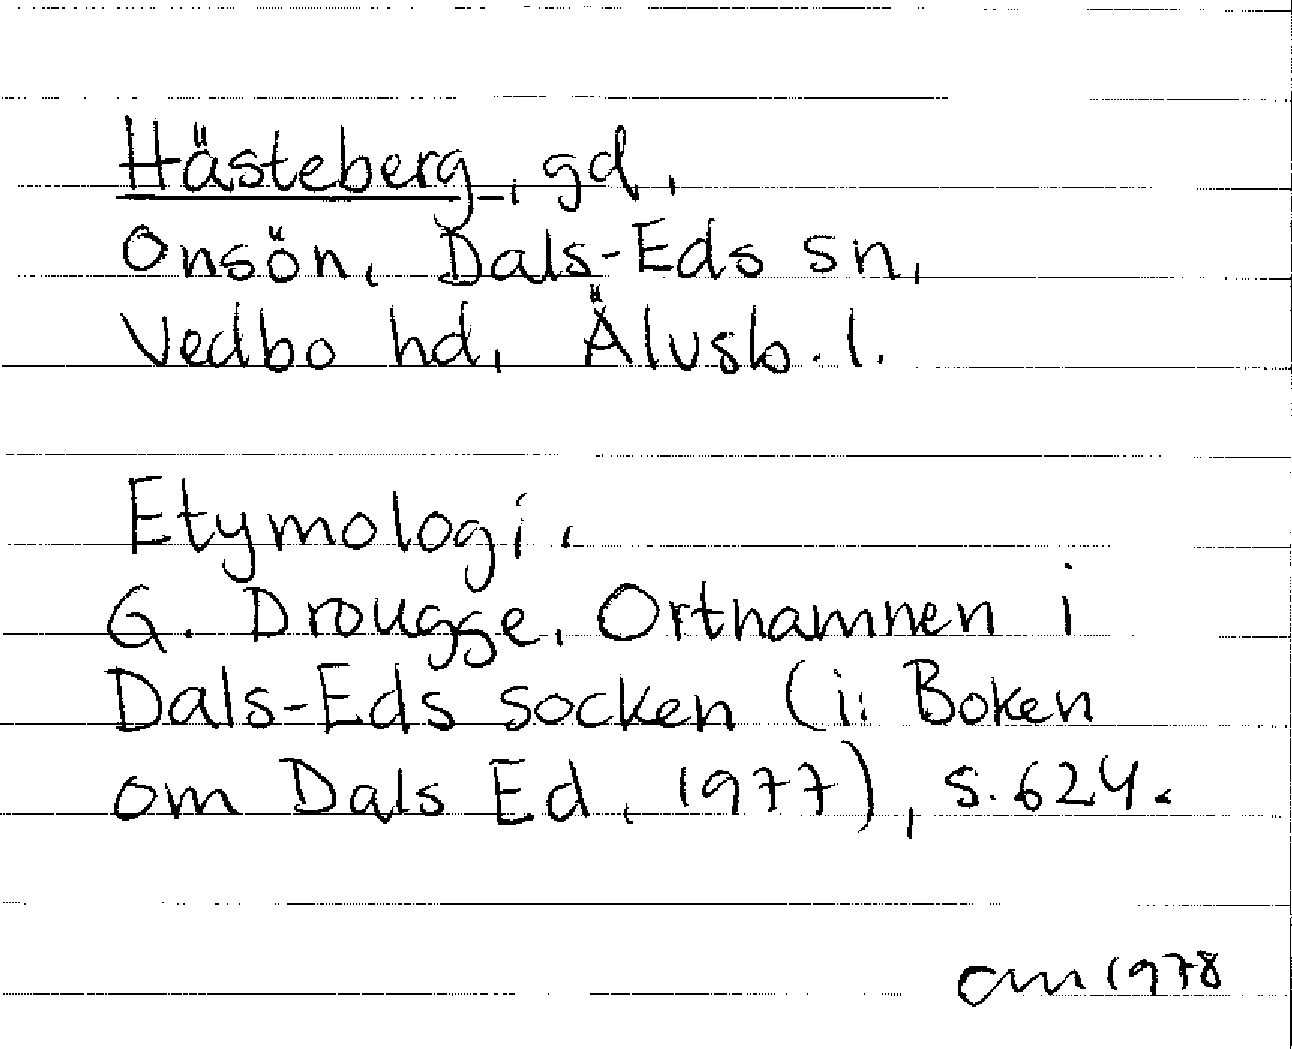 Hästeberg, gd,
Onsön, Dals-Eds sn,
Vedbo hd, Älvsb. l.
Etymologi.
G. Drougge, Ortnamnen i
Dals-Eds socken (i: Boken
om Dals Ed, 1977), s. 624.
1978